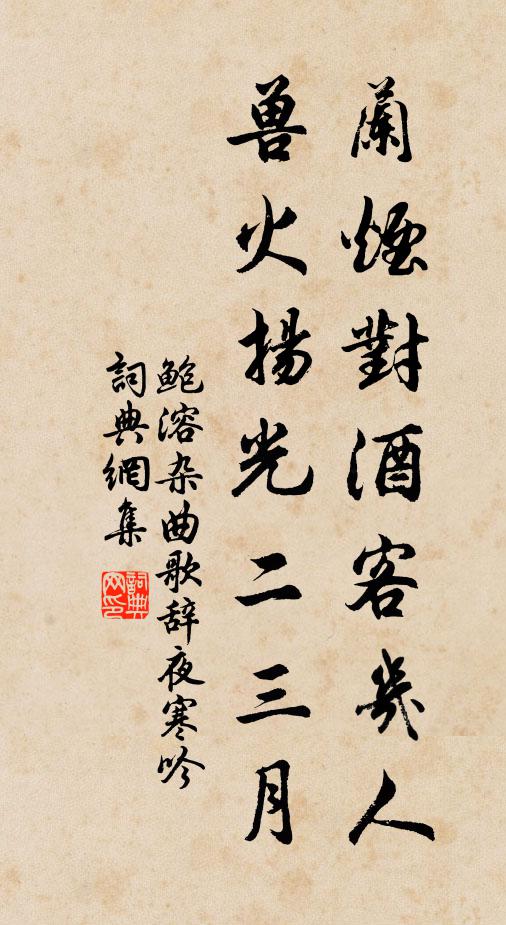 蘭煙對酒客幾人
兽火揚光二三月
鲍溶杂曲歌辞夜寒吟
詞典網集
詞典网印